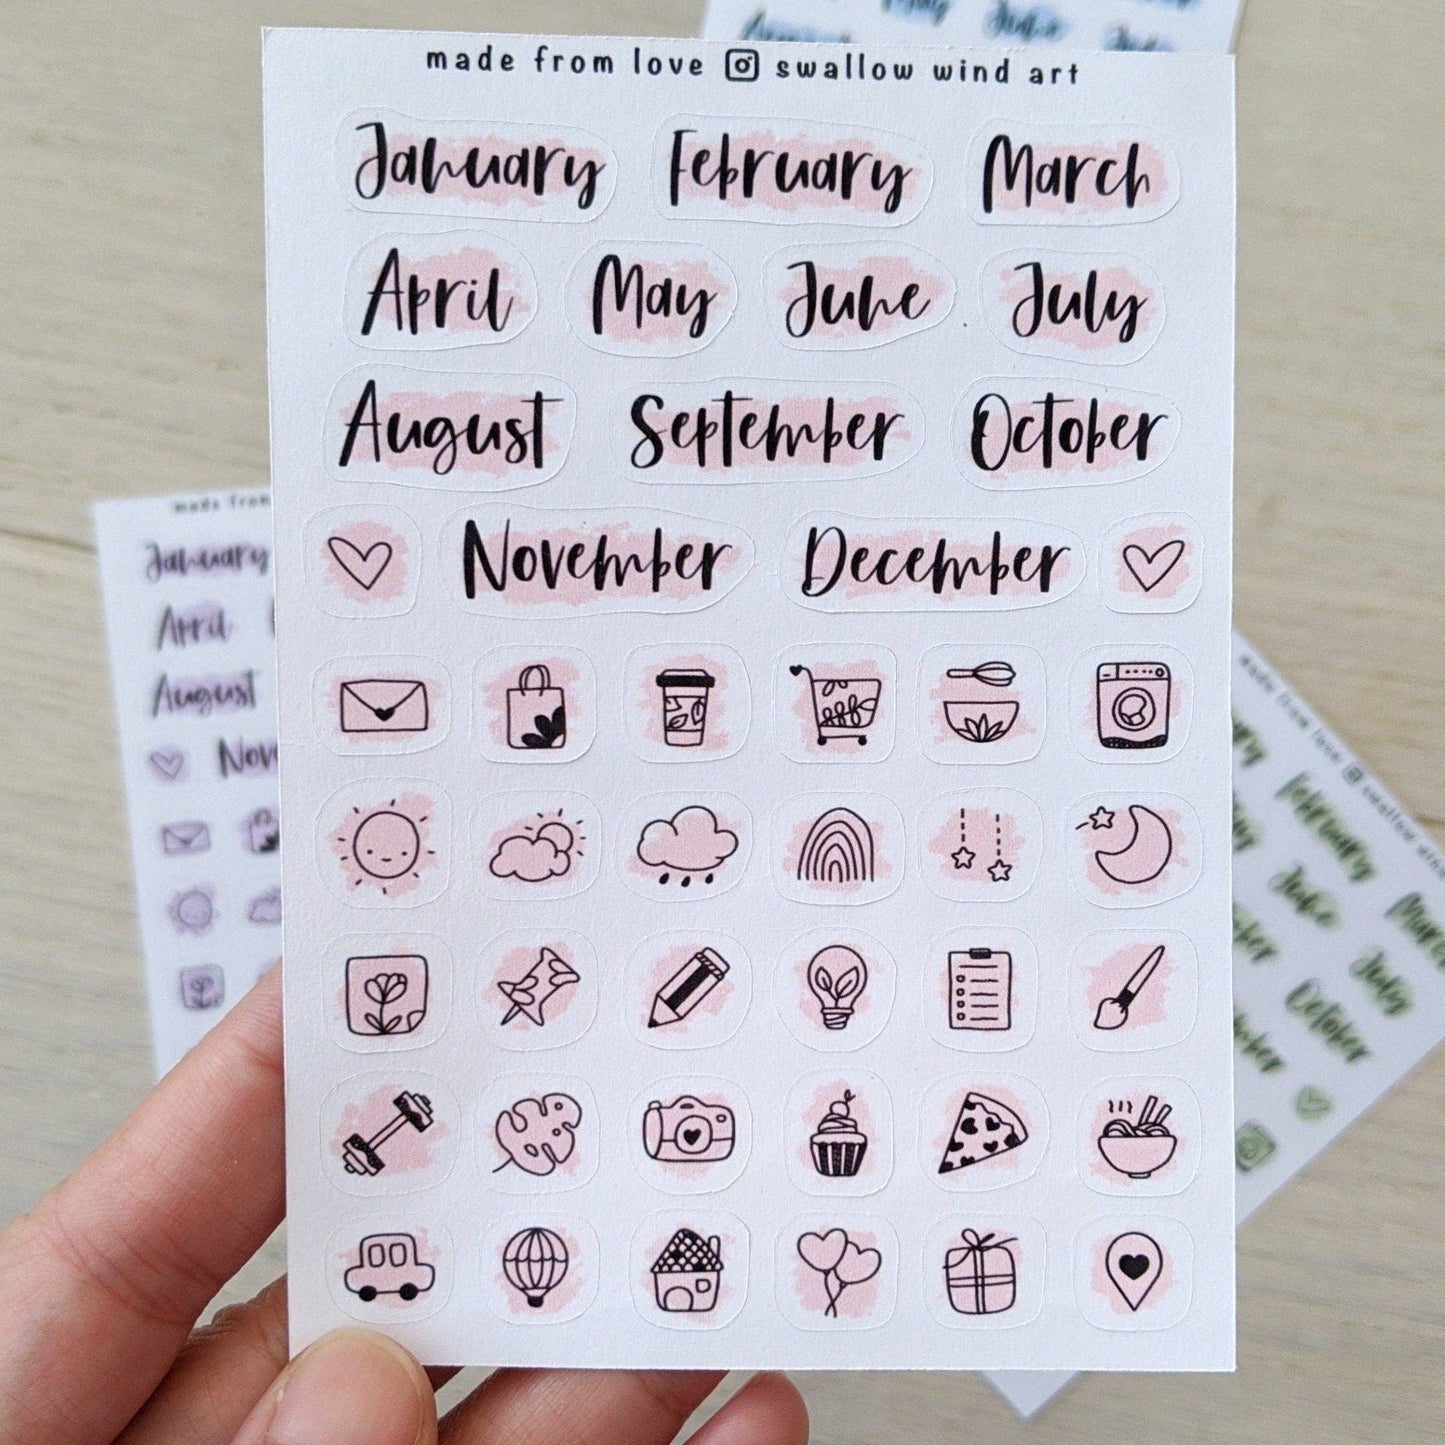 made from love swallow wind art
January February March
April May June July
August September October
November December
made from
January
April
August
Nov
made from love swallow wind
February
March
June
July
October
June